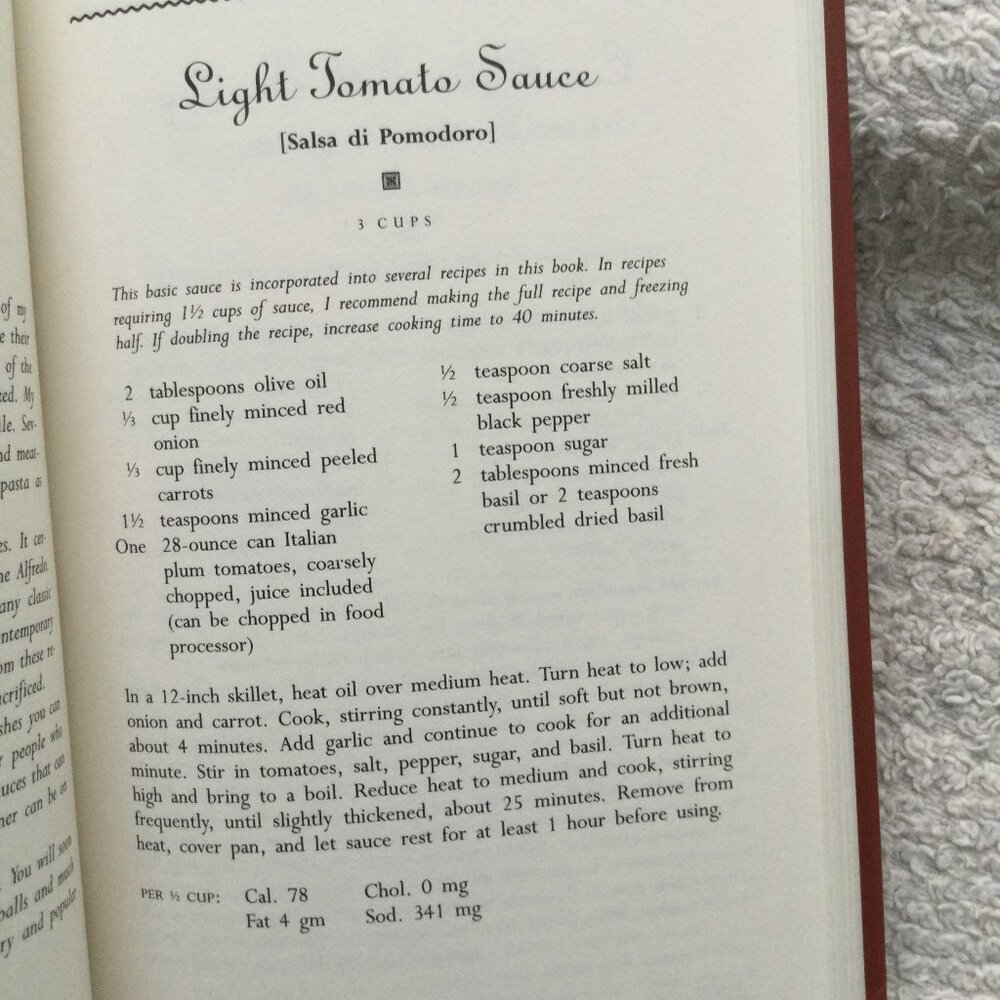 Light Tomato Sauce
[Salsa di Pomodoro]
3 CUPS
This basic sauce is incorporated into several recipes in this book. In recipes
requiring 1½ cups of sauce, I recommend making the full recipe and freezing
half. If doubling the recipe, increase cooking time to 40 minutes.
2 tablespoons olive oil
⅓ cup finely minced red
onion
⅓ cup finely minced peeled
carrots
1½ teaspoons minced garlic
One 28-ounce can Italian
plum tomatoes, coarsely
chopped, juice included
(can be chopped in food
processor)
½ teaspoon coarse salt
½ teaspoon freshly milled
black pepper
1 teaspoon sugar
2 tablespoons minced fresh
basil or 2 teaspoons
crumbled dried basil
In a 12-inch skillet, heat oil over medium heat. Turn heat to low; add
onion and carrot. Cook, stirring constantly, until soft but not brown,
about 4 minutes. Add garlic and continue to cook for an additional
minute. Stir in tomatoes, salt, pepper, sugar, and basil. Turn heat to
high and bring to a boil. Reduce heat to medium and cook, stirring
frequently, until slightly thickened, about 25 minutes. Remove from
heat, cover pan, and let sauce rest for at least 1 hour before using.
PER ½ CUP: Cal. 78 Chol. 0 mg
Fat 4 gm Sod. 341 mg
of my
their
of the
My
meat-
pasta as
It cer-
Alfredo.
any classic
from these re-
you can
people who
that can
can be on
You will soon
and much
and popular